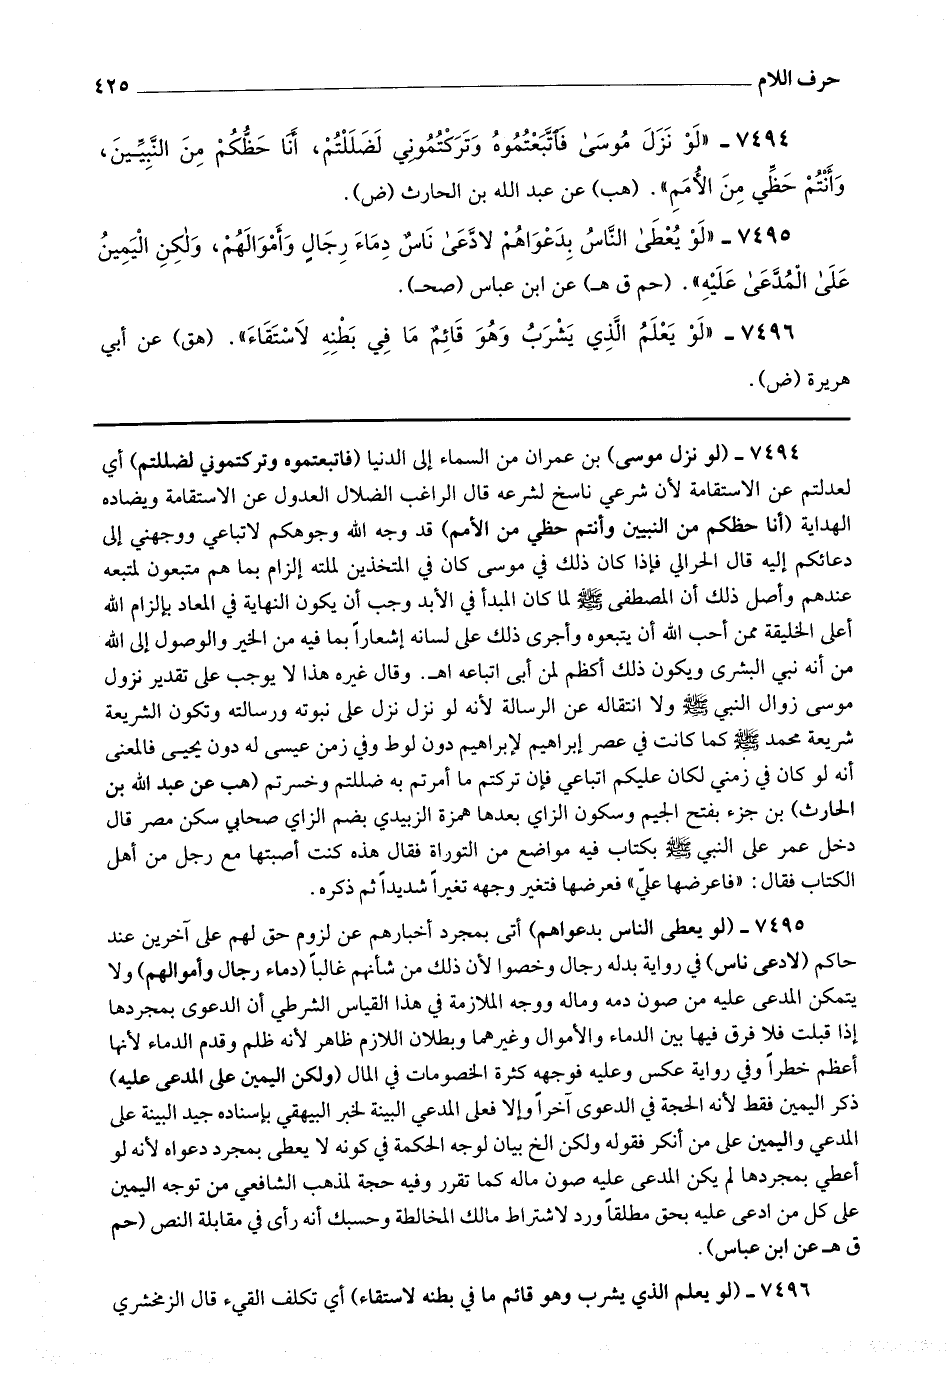 حرف اللام ٤٢٥
٧٤٩٤ ـ «لَوْ نَزَلَ مُوسَىٰ فَاتَّبَعْتُمُوهُ وَتَرَكْتُمُونِي لَضَلَلْتُمْ، أَنَا حَظُّكُمْ مِنَ النَّبِيِّينَ،
وَأَنْتُمْ حَظِّي مِنَ الْأُمَمِ». (هب) عن عبد الله بن الحارث (ض).
٧٤٩٥ ـ «لَوْ يُعْطَىٰ النَّاسُ بِدَعْوَاهُمْ لادَّعَىٰ نَاسٌ دِمَاءَ رِجَالٍ وَأَمْوَالَهُمْ، وَلٰكِنِ الْيَمِينُ
عَلَىٰ الْمُدَّعَىٰ عَلَيْهِ». (حم ق هـ) عن ابن عباس (صحـ).
٧٤٩٦ ـ «لَوْ يَعْلَمُ الَّذِي يَشْرَبُ وَهُوَ قَائِمٌ مَا فِي بَطْنِهِ لَاسْتَقَاءَ». (هق) عن أبي
هريرة (ض).
٧٤٩٤ ـ (لو نزل موسى) بن عمران من السماء إلى الدنيا (فاتبعتموه وتركتموني لضللتم) أي
لعدلتم عن الاستقامة لأن شرعي ناسخ لشرعه قال الراغب الضلال العدول عن الاستقامة ويضاده
الهداية (أنا حظكم من النبيين وأنتم حظي من الأمم) قد وجه الله وجوهكم لاتباعي ووجهني إلى
دعائكم إليه قال الحرالي فإذا كان ذلك في موسى كان في المتخذين لملته إلزام بما هم متبعون لمتبعه
عندهم وأصل ذلك أن المصطفى ﷺ لما كان المبدأ في الأبد وجب أن يكون النهاية في المعاد بإلزام الله
أعلى الخليقة ممن أحب الله أن يتبعوه وأجرى ذلك على لسانه إشعاراً بما فيه من الخير والوصول إلى الله
من أنه نبي البشرى ويكون ذلك أكظم لمن أبى اتباعه اهـ. وقال غيره هذا لا يوجب على تقدير نزول
موسى زوال النبي ﷺ ولا انتقاله عن الرسالة لأنه لو نزل نزل على نبوته ورسالته وتكون الشريعة
شريعة محمد ﷺ كما كانت في عصر إبراهيم لإبراهيم دون لوط وفي زمن عيسى له دون يحيـى فالمعنى
أنه لو كان في زمني لكان عليكم اتباعي فإن تركتم ما أمرتم به ضللتم وخسرتم (هب عن عبد الله بن
الحارث) بن جزء بفتح الجيم وسكون الزاي بعدها همزة الزبيدي بضم الزاي صحابي سكن مصر قال
دخل عمر على النبي ﷺ بكتاب فيه مواضع من التوراة فقال هذه كنت أصبتها مع رجل من أهل
الكتاب فقال: «فاعرضها عليّ» فعرضها فتغير وجهه تغيراً شديداً ثم ذكره.
٧٤٩٥ ـ (لو يعطى الناس بدعواهم) أتى بمجرد أخبارهم عن لزوم حق لهم على آخرين عند
حاكم (لادعى ناس) في رواية بدله رجال وخصوا لأن ذلك من شأنهم غالباً (دماء رجال وأموالهم) ولا
يتمكن المدعى عليه من صون دمه وماله ووجه الملازمة في هذا القياس الشرطي أن الدعوى بمجردها
إذا قبلت فلا فرق فيها بين الدماء والأموال وغيرهما وبطلان اللازم ظاهر لأنه ظلم وقدم الدماء لأنها
أعظم خطراً وفي رواية عكس وعليه فوجهه كثرة الخصومات في المال (ولكن اليمين على المدعى عليه)
ذكر اليمين فقط لأنه الحجة في الدعوى آخراً وإلا فعلى المدعي البينة لخبر البيهقي بإسناده جيد البينة على
المدعي واليمين على من أنكر فقوله ولكن الخ بيان لوجه الحكمة في كونه لا يعطى بمجرد دعواه لأنه لو
أعطي بمجردها لم يكن المدعى عليه صون ماله كما تقرر وفيه حجة لمذهب الشافعي من توجه اليمين
على كل من ادعى عليه بحق مطلقاً ورد لاشتراط مالك المخالطة وحسبك أنه رأى في مقابلة النص (حم
ق هـ عن ابن عباس).
٧٤٩٦ ـ (لو يعلم الذي يشرب وهو قائم ما في بطنه لاستقاء) أي تكلف القيء قال الزمخشري